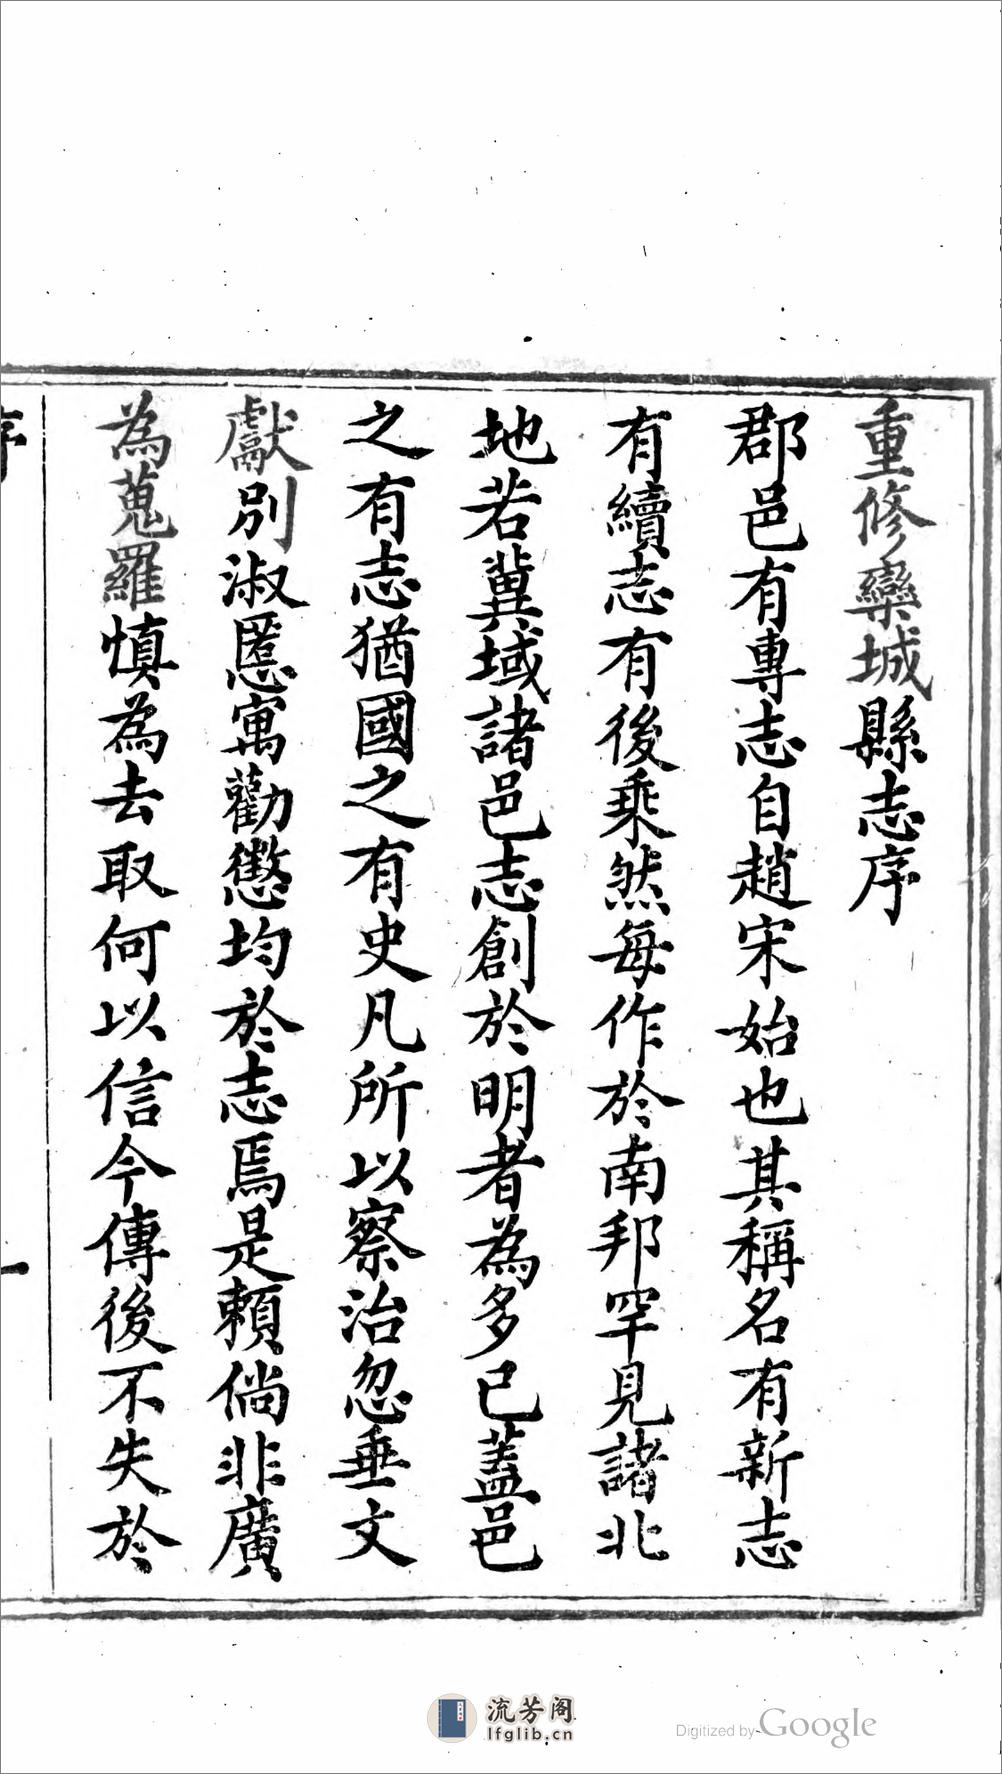 重修欒城縣志序
郡邑有專志自趙宋始也其稱名有新志
有續志有後乘然每作於南邦罕見諸北
地若冀域諸邑志創於明者為多已蓋邑
之有志猶國之有史凡所以察治忽垂文
獻別淑慝寓勸懲均於志焉是賴倘非廣
為蒐羅慎為去取何以信今傳後不失於
序
一
流芳阁
lfglib.cn
Digitized by Google